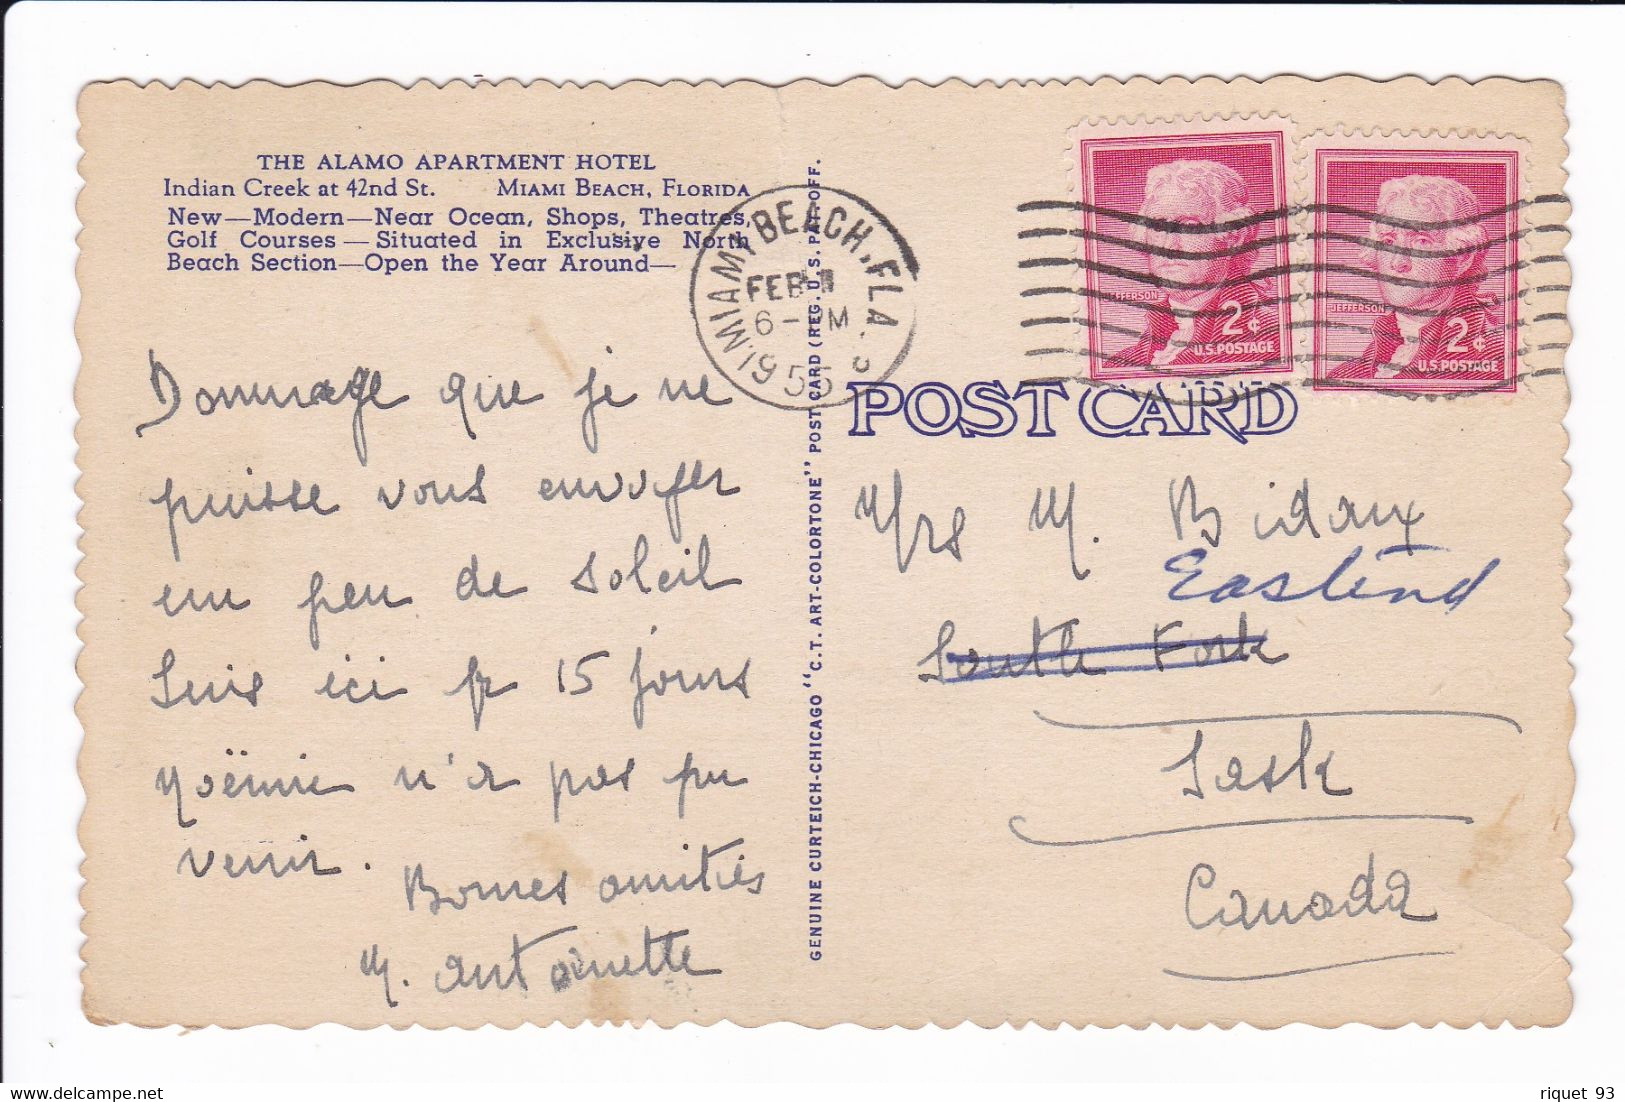 THE ALAMO APARTMENT HOTEL
Indian Creek at 42nd St. MIAMI BEACH, FLORIDA
New—Modern—Near Ocean, Shops, Theatres,
Golf Courses — Situated in Exclusive North
Beach Section—Open the Year Around—
Dommage que je ne
puisse vous envoyer
un peu de soleil
Suis ici pr 15 jours
Noëmie n'a pas pu
venir.
Bonnes amitiés
M. Antoinette
GENUINE CURTEICH-CHICAGO "C.T. ART-COLORTONE" POST CARD (REG. U.S. PAT. OFF.
MIAMI BEACH, FLA.
FEB
6- M
1955
JEFFERSON
2¢
U.S. POSTAGE
JEFFERSON
2¢
U.S. POSTAGE
POST CARD
Mrs M. Bidaux
Eastend
South Fork
Sask
Canada
delcampe.net
riquet 93